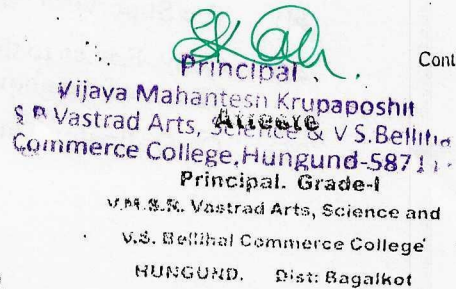 Cont
Principal
Vijaya Mahantesh Krupaposhit
S R Vastrad Arts, Science & V S.Bellihal
Commerce College, Hungund-58711
Principal. Grade-I
V.M.S.R. Vastrad Arts, Science and
V.S. Bellihal Commerce College
HUNGUND. Dist: Bagalkot